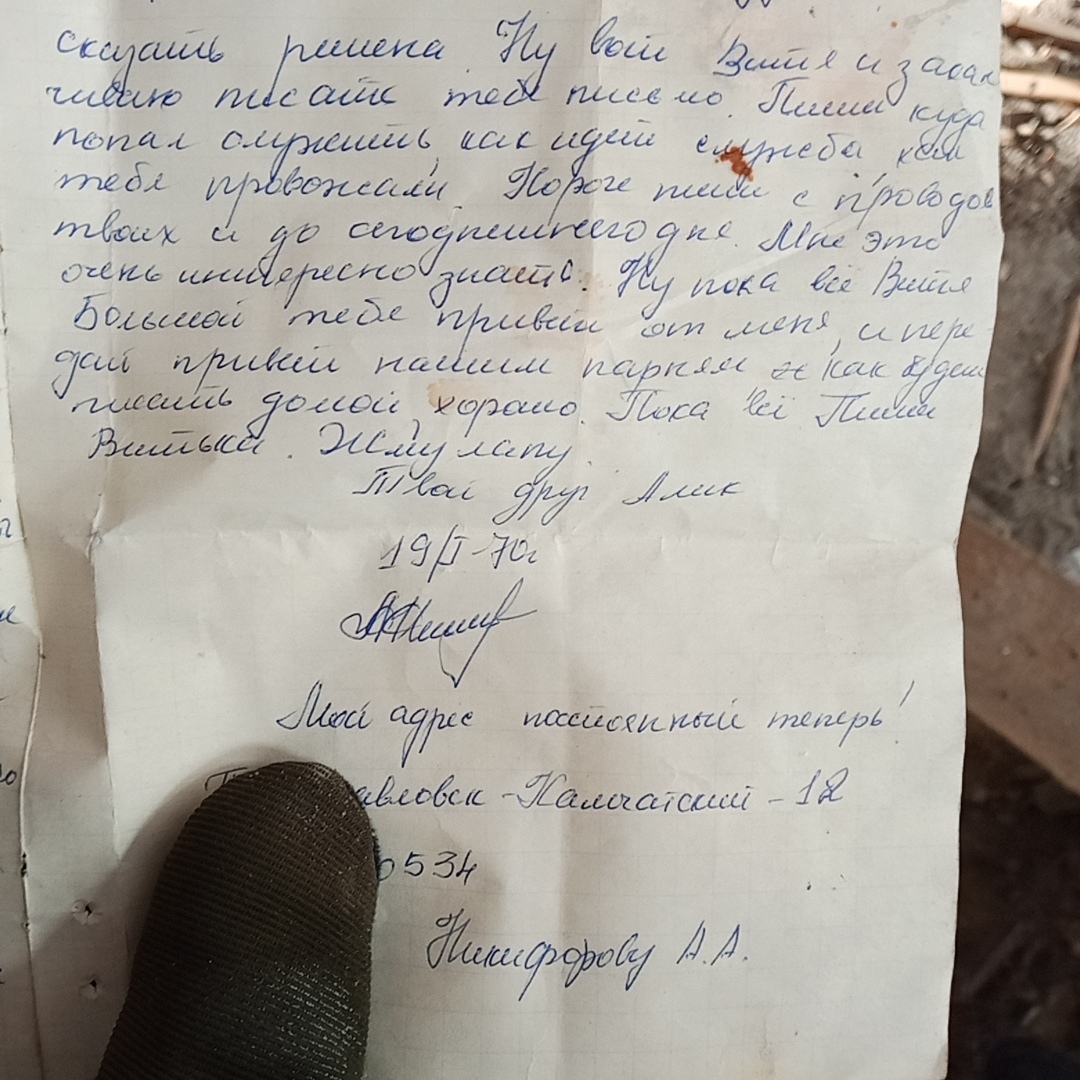 сказать решена. Ну вот Витя и закан
чиваю писать тебе письмо. Пиши куда
попал служить, как идет служба, как
тебя провожали. Короче пиши с проводов
твоих и до сегодняшнего дня. Мне это
очень интересно знать. Ну пока всё Витя
Большой тебе привет от меня, и пере-
дай привет нашим парням, как будеш
писать домой, хорошо. Пока всё. Пиши
Витька. Жму лапу.
Твой друг Алик
19/I-70г
Мой адрес постоянный теперь!
авловск-Камчатский-12
534
Никифорову А.А.